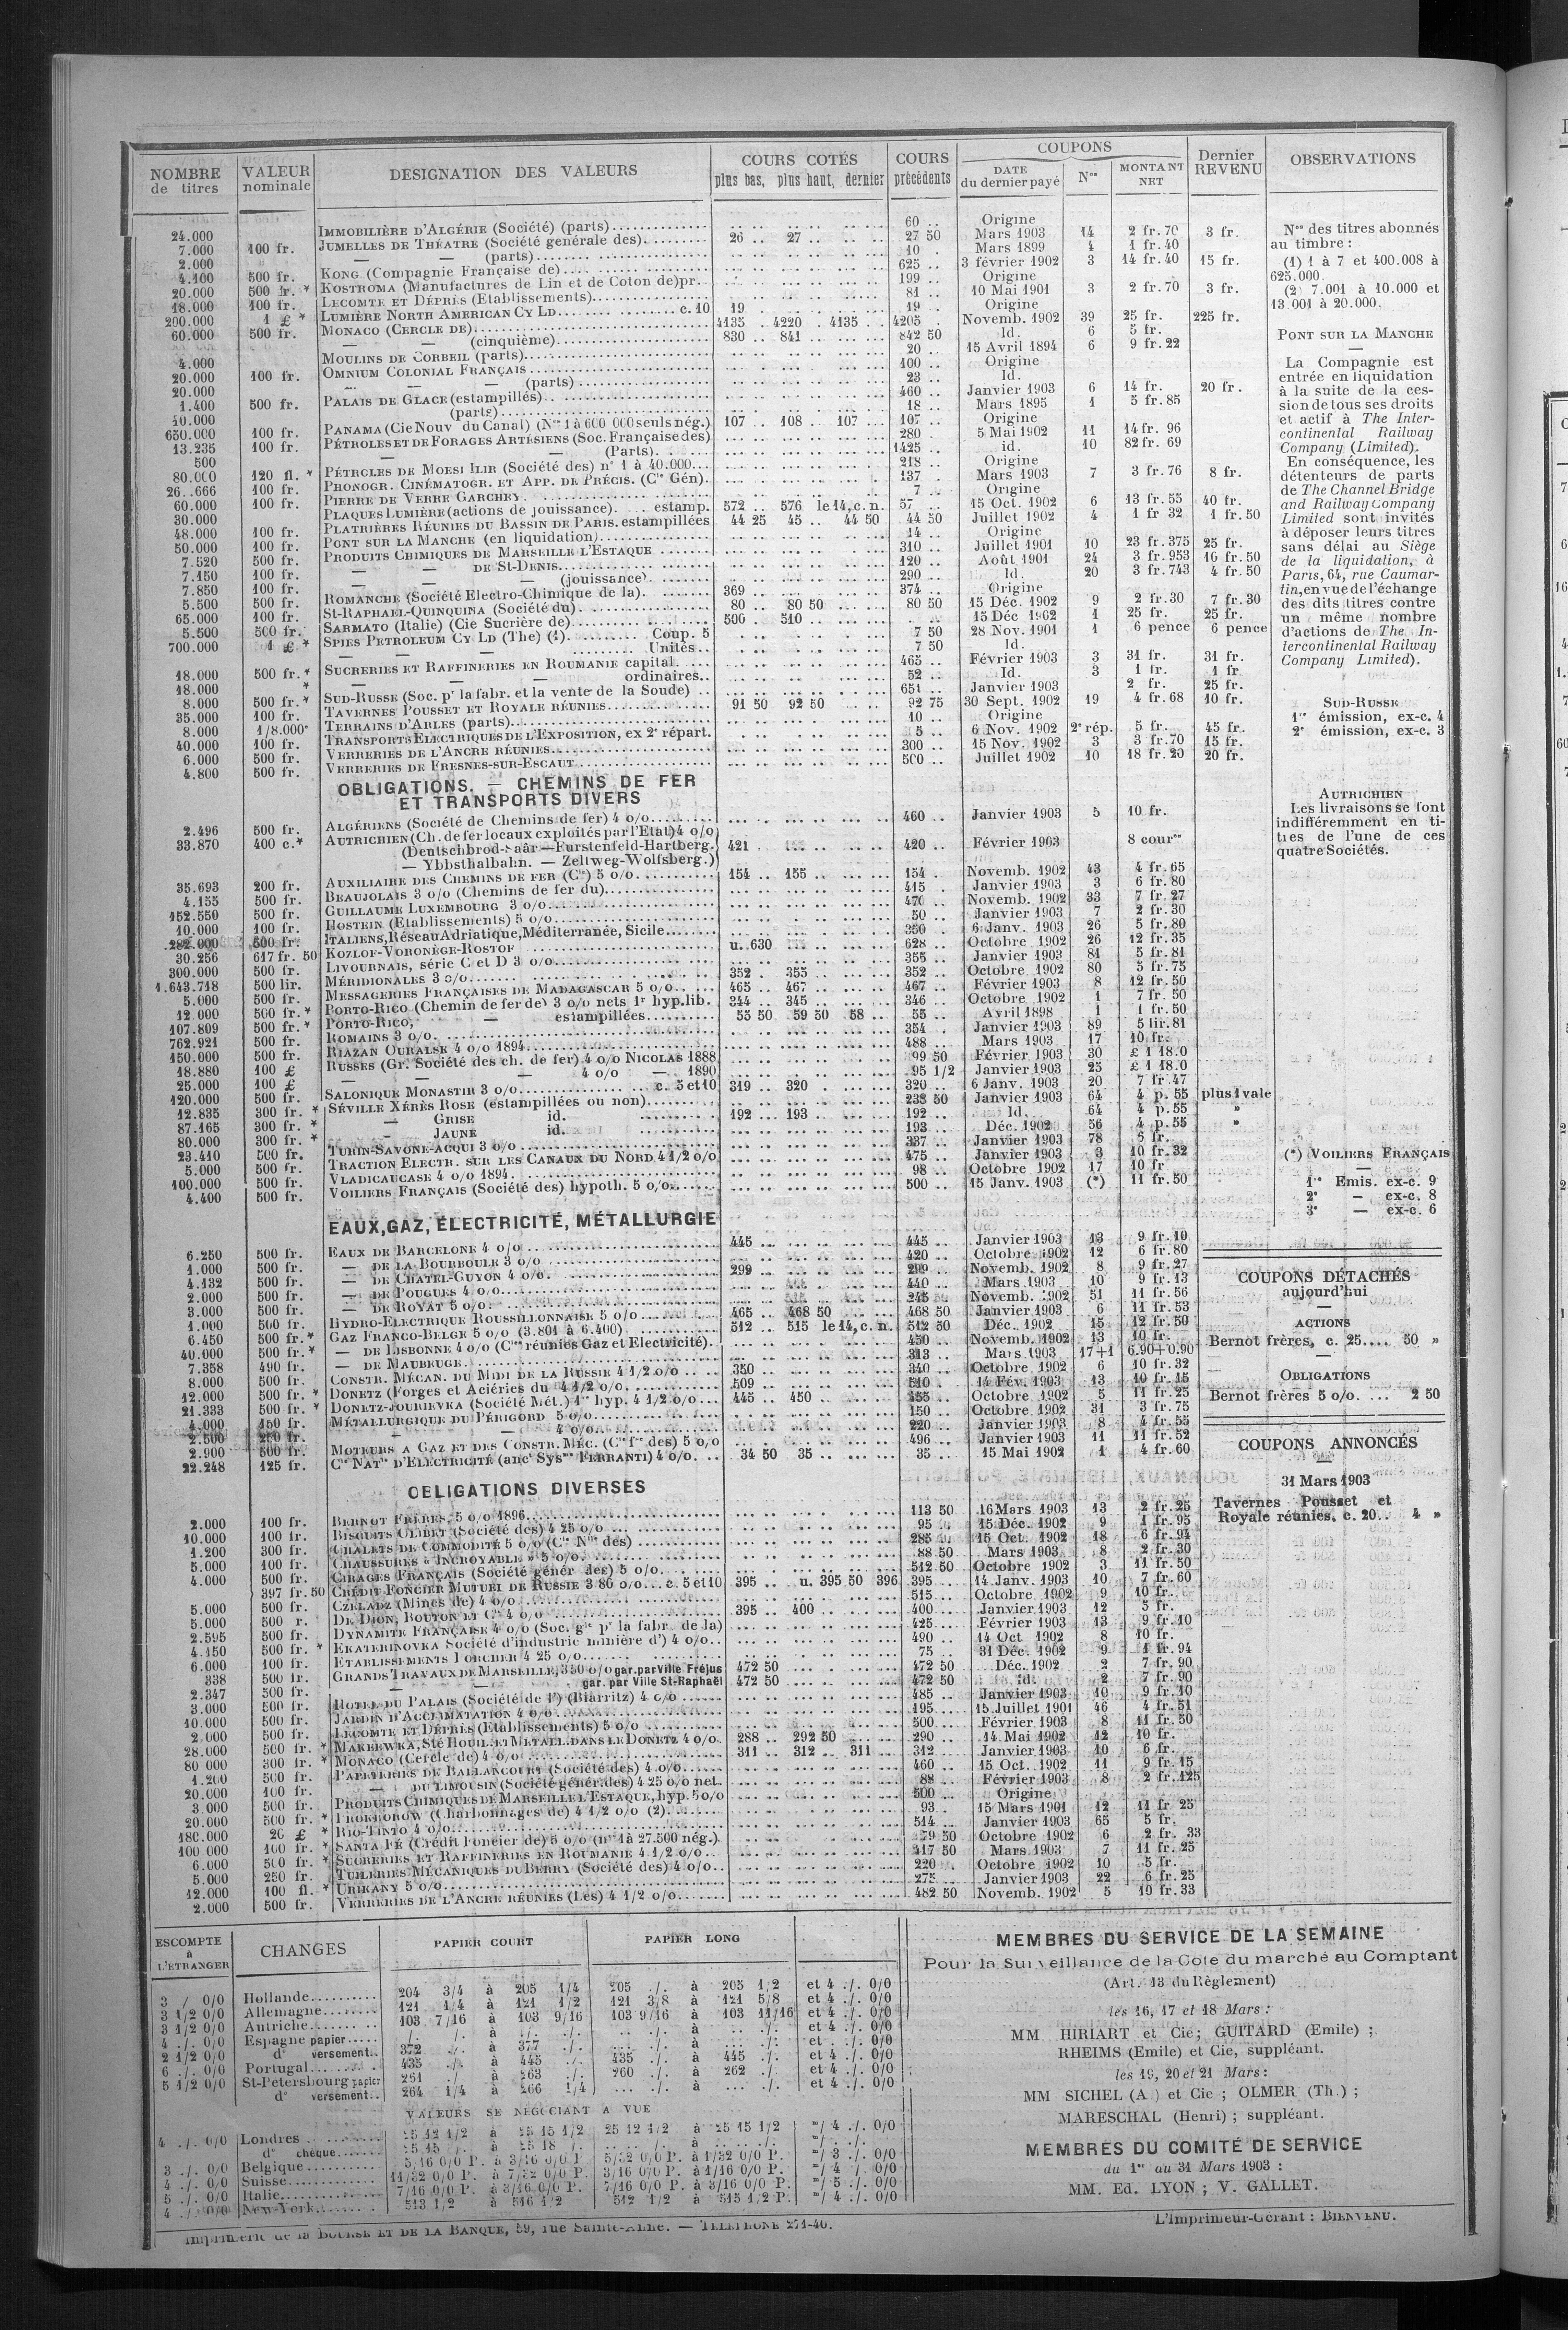 NOMBRE de titres | VALEUR nominale | DESIGNATION DES VALEURS | COURS COTÉS plus bas, plus haut, dernier | COURS précédents | COUPONS DATE du dernier payé | Nos | MONTANT NET | Dernier REVENU | OBSERVATIONS
24.000 IMMOBILIÈRE D'ALGÉRIE (Société) (parts) 60 .. Origine
7.000 100 fr. JUMELLES DE THÉATRE (Société genérale des) 26 .. 27 .. 27 50 Mars 1903 14 2 fr. 70 3 fr.
2.000 — — (parts) 10 . Mars 1899 4 1 fr. 40
4.100 500 fr. KONG (Compagnie Française de) 625 .. 3 février 1902 3 14 fr. 40 15 fr.
20.000 500 fr. * KOSTROMA (Manufactures de Lin et de Coton de) pr. 199 .. Origine
18.000 100 fr. LECOMTE ET DÉPRÈS (Etablissements) 81 .. 10 Mai 1901 3 2 fr. 70 3 fr.
200.000 1 £ * LUMIÈRE NORTH AMERICAN CY LD c. 10 19 .. 19 .. Origine
60.000 500 fr. MONACO (CERCLE DE) 4135 .. 4220 . 4135 . 4205 . Novemb. 1902 39 25 fr. 225 fr.
— — (cinquième) 830 .. 841 .. 842 50 Id. 6 5 fr.
4.000 MOULINS DE CORBEIL (parts) 20 .. 15 Avril 1894 6 9 fr. 22
20.000 100 fr. OMNIUM COLONIAL FRANÇAIS 100 .. Origine
20.000 — — (parts) 23 .. Id.
1.400 500 fr. PALAIS DE GLACE (estampillés) 460 .. Janvier 1903 6 14 fr. 20 fr.
10.000 (parts) 18 .. Mars 1895 1 5 fr. 85
650.000 100 fr. PANAMA (Cie Nouv du Canal) (Nos 1 à 600 000 seuls nég.) 107 .. 108 . 107 ... 107 .. Origine
13.235 100 fr. PÉTROLES ET DE FORAGES ARTÉSIENS (Soc. Française des) 280 . 5 Mai 1902 11 14 fr. 96
500 — — (Parts) 1425 .. id. 10 82 fr. 69
80.000 120 fl. * PÉTROLES DE MOESI ILIR (Société des) n° 1 à 40.000 218 .. Origine
26..666 100 fr. PHONOGR. CINÉMATOGR. ET APP. DE PRÉCIS. (Cie Gén) 137 . Mars 1903 7 3 fr. 76 8 fr.
60.000 100 fr. PIERRE DE VERRE GARCHEY 7 .. Origine
30.000 PLAQUES LUMIÈRE (actions de jouissance) estamp. 572 .. 576 le 14, c. n. 57 . 15 Oct. 1902 6 13 fr. 55 40 fr.
48.000 100 fr. PLATRIÈRES RÉUNIES DU BASSIN DE PARIS. estampillées 44 25 45 .. 44 50 44 50 Juillet 1902 4 1 fr 32 1 fr. 50
50.000 100 fr. PONT SUR LA MANCHE (en liquidation) 14 .. Origine
7.520 500 fr. PRODUITS CHIMIQUES DE MARSEILLE L'ESTAQUE 310 .. Juillet 1901 10 23 fr. 375 25 fr.
7.150 100 fr. — — DE St-DENIS 120 .. Août 1901 24 3 fr. 953 16 fr. 50
7.850 100 fr. — — (jouissance) 290 .. Id. 20 3 fr. 743 4 fr. 50
5.500 500 fr. ROMANCHE (Société Electro-Chimique de la) 369 .. 374 .. Origine
65.000 100 fr. St-RAPHAEL-QUINQUINA (Société du) 80 .. 80 50 80 50 15 Déc. 1902 9 2 fr. 30 7 fr. 30
5.500 500 fr. SARMATO (Italie) (Cie Sucrière de) 500 .. 510 .. 15 Déc 1902 1 25 fr. 25 fr.
700.000 1 £ * SPIES PETROLEUM CY LD (The) (1) Coup. 5 7 50 28 Nov. 1901 1 6 pence 6 pence
— — Unités 7 50 Id.
18.000 500 fr. * SUCRERIES ET RAFFINERIES EN ROUMANIE capital 465 .. Février 1903 3 31 fr. 31 fr.
18.000 * — — ordinaires 52 .. Id. 3 1 fr. 1 fr
8.000 500 fr. * SUD-RUSSE (Soc. pr la fabr. et la vente de la Soude) 651 .. Janvier 1903 2 fr. 25 fr.
35.000 100 fr. TAVERNES POUSSET ET ROYALE RÉUNIES 91 50 92 50 92 75 30 Sept. 1902 19 4 fr. 68 10 fr.
8.000 1/8.000e TERRAINS D'ARLES (parts) 10 .. Origine
40.000 100 fr. TRANSPORTS ELECTRIQUES DE L'EXPOSITION, ex 2e répart. 5 .. 6 Nov. 1902 2e rép. 5 fr. 45 fr.
6.000 500 fr. VERRERIES DE L'ANCRE RÉUNIES 300 .. 15 Nov. 1902 3 3 fr. 70 15 fr.
4.800 500 fr. VERRERIES DE FRESNES-SUR-ESCAUT 500 .. Juillet 1902 10 18 fr. 20 20 fr.
OBLIGATIONS. — CHEMINS DE FER
ET TRANSPORTS DIVERS
2.496 500 fr. ALGÉRIENS (Société de Chemins de fer) 4 o/o 460 .. Janvier 1903 5 10 fr.
33.870 400 c. * AUTRICHIEN (Ch. de fer locaux exploités par l'Etat) 4 o/o
(Deutschbrod-Saâr—Furstenfeld-Hartberg. 421 . 420 .. Février 1903 8 cour
— Ybbsthalbahn. — Zeltweg-Wolfsberg.)
35.693 200 fr. AUXILIAIRE DES CHEMINS DE FER (Cie) 5 o/o 154 .. 155 .. 154 . Novemb. 1902 43 4 fr. 65
4.155 500 fr. BEAUJOLAIS 3 o/o (Chemins de fer du) 415 . Janvier 1903 3 6 fr. 80
152.550 500 fr. GUILLAUME LUXEMBOURG 3 o/o 470 .. Novemb. 1902 33 7 fr. 27
10.000 100 fr. HOSTEIN (Etablissements) 5 o/o 50 .. Janvier 1903 7 2 fr. 30
282.000 500 fr. ITALIENS, Réseau Adriatique, Méditerranée, Sicile 350 .. 6 Janv. 1903 26 5 fr. 80
30.256 617 fr. 50 KOZLOF-VORONÈGE-ROSTOF u. 630 628 .. Octobre 1902 26 12 fr. 35
300.000 500 fr. LIVOURNAIS, série C et D 3 o/o 355 .. Janvier 1903 81 5 fr. 81
1.643.718 500 lir. MÉRIDIONALES 3 o/o 352 . 355 .. 352 .. Octobre 1902 80 5 fr. 75
5.000 500 fr. MESSAGERIES FRANÇAISES DE MADAGASCAR 5 o/o 465 .. 467 .. 467 .. Février 1903 8 12 fr. 50
12.000 500 fr. * PORTO-RICO (Chemin de fer de) 3 o/o nets 1r hyp. lib. 344 .. 345 .. 346 .. Octobre 1902 1 7 fr. 50
107.809 500 fr. * PORTO-RICO, — estampillées 55 50 59 50 58 .. 55 .. Avril 1898 1 1 fr. 50
762.921 500 fr. ROMAINS 3 o/o 354 . Janvier 1903 89 5 lir. 81
150.000 500 fr. RIAZAN OURALSK 4 o/o 1894 488 .. Mars 1903 17 10 fr.
18.880 100 £ RUSSES (Gr. Société des ch. de fer) 4 o/o NICOLAS 1888 99 50 Février 1903 30 £ 1 18.0
25.000 100 £ — — 4 o/o — 1890 95 1/2 Janvier 1903 25 £ 1 18.0
120.000 500 fr. SALONIQUE MONASTIR 3 o/o c. 5 et 10 319 .. 320 . 320 .. 6 Janv. 1903 20 7 fr 47
12.835 300 fr. * SÉVILLE XÉRÈS ROSE (estampillées ou non) 238 50 Janvier 1903 64 4 p. 55 plus 1 vale
87.165 300 fr. * — GRISE id. 192 .. 193 .. 192 .. Id. 64 4 p. 55 »
80.000 300 fr. * — JAUNE id. 193 .. Déc. 1902 56 4 p. 55 »
23.410 500 fr. TURIN-SAVONE-ACQUI 3 o/o 337 .. Janvier 1903 78 5 fr.
5.000 500 fr. TRACTION ELECTR. SUR LES CANAUX DU NORD 4 1/2 o/o 475 .. Janvier 1903 3 10 fr. 32
100.000 500 fr. VLADICAUCASE 4 o/o 1894 98 .. Octobre 1902 17 10 fr
4.400 500 fr. VOILIERS FRANÇAIS (Société des) hypoth. 5 o/o 500 .. 15 Janv. 1903 (*) 11 fr. 50
EAUX, GAZ, ÉLECTRICITÉ, MÉTALLURGIE
6.250 500 fr. EAUX DE BARCELONE 4 o/o 445 445 .. Janvier 1903 13 9 fr. 10
1.000 500 fr. — DE LA BOURBOULE 3 o/o 420 .. Octobre 1902 12 6 fr. 80
4.132 500 fr. — DE CHATEL-GUYON 4 o/o 299 299 .. Novemb. 1902 8 9 fr. 27
2.000 500 fr. — DE POUGUES 4 o/o 440 .. Mars 1903 10 9 fr. 13
3.000 500 fr. — DE ROYAT 5 o/o 245 .. Novemb. 1902 51 11 fr. 56
1.000 500 fr. HYDRO-ELECTRIQUE ROUSSILLONNAISE 5 o/o 465 .. 468 50 468 50 Janvier 1903 6 11 fr. 53
6.450 500 fr. * GAZ FRANCO-BELGE 5 o/o (3.801 à 6.400) 512 .. 515 le 14, c. n. 512 50 Déc. 1902 15 12 fr. 50
40.000 500 fr. * — DE LISBONNE 4 o/o (Cies réunies Gaz et Electricité) 450 .. Novemb. 1902 13 10 fr.
7.358 490 fr. — DE MAUBEUGE 313 .. Mars 1903 17+1 6.90+0.90
8.000 500 fr. CONSTR. MÉCAN. DU MIDI DE LA RUSSIE 4 1/2 o/o 350 340 .. Octobre 1902 6 10 fr. 32
12.000 500 fr. * DONETZ (Forges et Aciéries du 4 1/2 o/o 509 510 .. 14 Fév. 1903 13 10 fr. 15
21.333 500 fr. * DONETZ-JOURIEVKA (Société Mét.) 1re hyp. 4 1/2 o/o 445 .. 450 .. 455 .. Octobre 1902 5 11 fr. 25
4.000 150 fr. MÉTALLURGIQUE DU PÉRIGORD 5 o/o 150 .. Octobre 1902 31 3 fr. 75
2.500 250 fr. — — 4 o/o 220 .. Janvier 1903 8 4 fr. 55
2.900 500 fr. MOTEURS A GAZ ET DES CONSTR. MÉC. (Cie fse des) 5 o/o 496 .. Janvier 1903 11 11 fr. 52
22.248 125 fr. Cie NATle D'ELECTRICITÉ (anct Sysme FERRANTI) 4 o/o 34 50 35 .. 35 .. 15 Mai 1902 1 4 fr. 60
OBLIGATIONS DIVERSES
2.000 100 fr. BERNOT FRÈRES, 5 o/o 1896 113 50 16 Mars 1903 13 2 fr. 25
10.000 100 fr. BISCUITS OLIBET (Société des) 4 25 o/o 95 .. 15 Déc. 1902 9 1 fr. 95
1.200 300 fr. CHALETS DE COMMODITÉ 5 o/o (Cie Nlle des) 285 .. 15 Oct. 1902 18 6 fr. 94
5.000 100 fr. CHAUSSURES « INCROYABLE » 5 o/o 88 50 Mars 1903 8 2 fr. 30
4.000 500 fr. CIRAGES FRANÇAIS (Société génér des) 5 o/o 512 50 Octobre 1902 3 11 fr. 50
397 fr. 50 CRÉDIT FONCIER MUTUEL DE RUSSIE 3 86 o/o c. 5 et 10 395 .. u. 395 50 396 395 .. 14 Janv. 1903 10 7 fr. 60
5.000 500 fr. CZELADZ (Mines de) 4 o/o 515 .. Octobre 1902 9 10 fr.
5.000 500 r. DE DION, BOUTON ET Cie 4 o/o 395 .. 400 .. 400 .. Janvier 1903 12 5 fr.
2.595 500 fr. DYNAMITE FRANÇAISE 4 o/o (Soc. gle pr la fabr de la) 425 .. Février 1903 13 9 fr. 10
4.150 500 fr. * EKATERINOVKA Société d'industrie minière d') 4 o/o 490 .. 14 Oct 1902 8 10 fr.
6.000 100 fr. ETABLISSEMENTS PORCHER 4 25 o/o 75 .. 31 Déc. 1902 9 1 fr. 94
338 500 fr. GRANDS TRAVAUX DE MARSEILLE, 3 50 o/o gar. par Ville Fréjus 472 50 472 50 Déc. 1902 2 7 fr. 90
2.347 500 fr. — — gar. par Ville St-Raphaël 472 50 472 50 id. 2 7 fr. 90
3.000 500 fr. HOTEL DU PALAIS (Société de l') (Biarritz) 4 o/o 485 .. Janvier 1903 10 9 fr. 10
10.000 500 fr. JARDIN D'ACCLIMATATION 4 o/o 195 15 Juillet 1901 46 4 fr. 51
2 000 500 fr. LECOMTE ET DÉPRÈS (Etablissements) 5 o/o 500 Février 1903 8 11 fr. 50
28.000 500 fr. * MAKEEWKA, Sté HOUIL. ET MÉTALL. DANS LE DONETZ 4 o/o 288 .. 292 50 290 .. 14 Mai 1902 12 10 fr.
80 000 300 fr. * MONACO (Cercle de) 4 o/o 311 .. 312 .. 311 312 .. Janvier 1903 10 6 fr.
1.200 500 fr. PAPETERIES DE BALLANCOURT (Société des) 4 o/o 460 .. 15 Oct. 1902 11 9 fr. 15
20.000 100 fr. — DU LIMOUSIN (Société génér. des) 4 25 o/o net 88 .. Février 1903 8 2 fr. 125
3 000 500 fr. PRODUITS CHIMIQUES DE MARSEILLE L'ESTAQUE, hyp. 5 o/o 500 .. Origine
20.000 500 fr. * PROKHOROW (Charbonnages de) 4 1/2 o/o (2) 93 . 15 Mars 1901 12 11 fr 25
180.000 20 £ * RIO-TINTO 4 o/o 514 .. Janvier 1903 65 5 fr.
100 000 100 fr. * SANTA FÉ (Crédit Foncier de) 5 o/o (nos 1 à 27.500 nég.) 50 Octobre 1902 6 2 fr. 33
6.000 500 fr. * SUCRERIES ET RAFFINERIES EN ROUMANIE 4 1/2 o/o 417 50 Mars 1903 7 11 fr. 25
5.000 250 fr. TUILERIES MÉCANIQUES DU BERRY (Société des) 4 o/o 220 . Octobre 1902 10 5 fr.
12.000 100 fl. * URIKANY 5 o/o 275 .. Janvier 1903 22 6 fr. 25
2.000 500 fr. VERRERIES DE L'ANCRE RÉUNIES (Les) 4 1/2 o/o 482 50 Novemb. 1902 5 10 fr. 33
Nos des titres abonnés
au timbre :
(1) 1 à 7 et 400.008 à
625.000.
(2) 7.001 à 10.000 et
13 001 à 20.000.
PONT SUR LA MANCHE
La Compagnie est
entrée en liquidation
à la suite de la ces-
sion de tous ses droits
et actif à The Inter-
continental Railway
Company (Limited).
En conséquence, les
détenteurs de parts
de The Channel Bridge
and Railway Company
Limited sont invités
à déposer leurs titres
sans délai au Siège
de la liquidation, à
Paris, 64, rue Caumar-
tin, en vue de l'échange
des dits titres contre
un même nombre
d'actions de The In-
tercontinental Railway
Company Limited).
SUD-RUSSE
1re émission, ex-c. 4
2e émission, ex-c. 3
AUTRICHIEN
Les livraisons se font
indifféremment en ti-
tres de l'une de ces
quatre Sociétés.
(*) VOILIERS FRANÇAIS
1re Emis. ex-c. 9
2e — ex-c. 8
3e — ex-c. 6
COUPONS DÉTACHÉS
aujourd'hui
ACTIONS
Bernot frères, c. 25.... 50 »
OBLIGATIONS
Bernot frères 5 o/o. ... 2 50
COUPONS ANNONCÉS
31 Mars 1903
Tavernes Pousset et
Royale réunies, c. 20.. 4 »
ESCOMPTE à L'ETRANGER | CHANGES | PAPIER COURT | PAPIER LONG
3 / 0/0 Hollande 204 3/4 à 205 1/4 205 ./. à 205 1/2 et 4 ./. 0/0
3 1/2 0/0 Allemagne 121 1/4 à 121 1/2 121 3/8 à 121 5/8 et 4 ./. 0/0
3 1/2 0/0 Autriche 103 7/16 à 103 9/16 103 9/16 à 103 11/16 et 4 ./. 0/0
4 ./. 0/0 Espagne papier ./. à ./. ./. à ./. et 4 ./. 0/0
d° versement 372 ./. à 377 ./. ./. à ./. et . ./. 0/0
2 1/2 0/0 Portugal 435 ./. à 445 ./. 435 ./. à 445 ./. et 4 ./. 0/0
6 ./. 0/0 St-Petersbourg papier 261 ./. à 263 ./. 260 ./. à 262 ./. et 4 ./. 0/0
5 1/2 0/0 d° versement 264 1/4 à 266 1/4 ... ./. à ... ./. et 4 ./. 0/0
VALEURS SE NÉGOCIANT A VUE
4 ./. 0/0 Londres 25 12 1/2 à 25 15 1/2 25 12 1/2 à 25 15 1/2 4 ./. 0/0
d° chèque 25 15 ./. à 25 18 ./.
3 ./. 0/0 Belgique 5/16 0/0 P. à 3/16 0/0 P 5/32 0/0 P. à 1/32 0/0 P. 3 ./. 0/0
4 ./. 0/0 Suisse 11/32 0/0 P. à 7/32 0/0 P. 3/16 0/0 P. à 1/16 0/0 P. 4 ./. 0/0
5 ./. 0/0 Italie 7/16 0/0 P. à 3/16 0/0 P. 7/16 0/0 P. à 3/16 0/0 P. 5 ./. 0/0
4 ./. 0/0 New-York 513 1/2 à 516 1/2 512 1/2 à 515 1/2 P. 4 ./. 0/0
MEMBRES DU SERVICE DE LA SEMAINE
Pour la Surveillance de la Cote du marché au Comptant
(Art. 13 du Règlement)
les 16, 17 et 18 Mars :
MM HIRIART et Cie; GUITARD (Emile) ;
RHEIMS (Emile) et Cie, suppléant.
les 19, 20 et 21 Mars :
MM SICHEL (A.) et Cie ; OLMER (Th.) ;
MARESCHAL (Henri) ; suppléant.
MEMBRES DU COMITÉ DE SERVICE
du 1er au 31 Mars 1903 :
MM. Ed. LYON ; V. GALLET.
Imprimerie de la BOURSE ET DE LA BANQUE, 59, rue Sainte-Anne. — TELEPHONE 271-40.
L'Imprimeur-Gérant : BIENVENU.